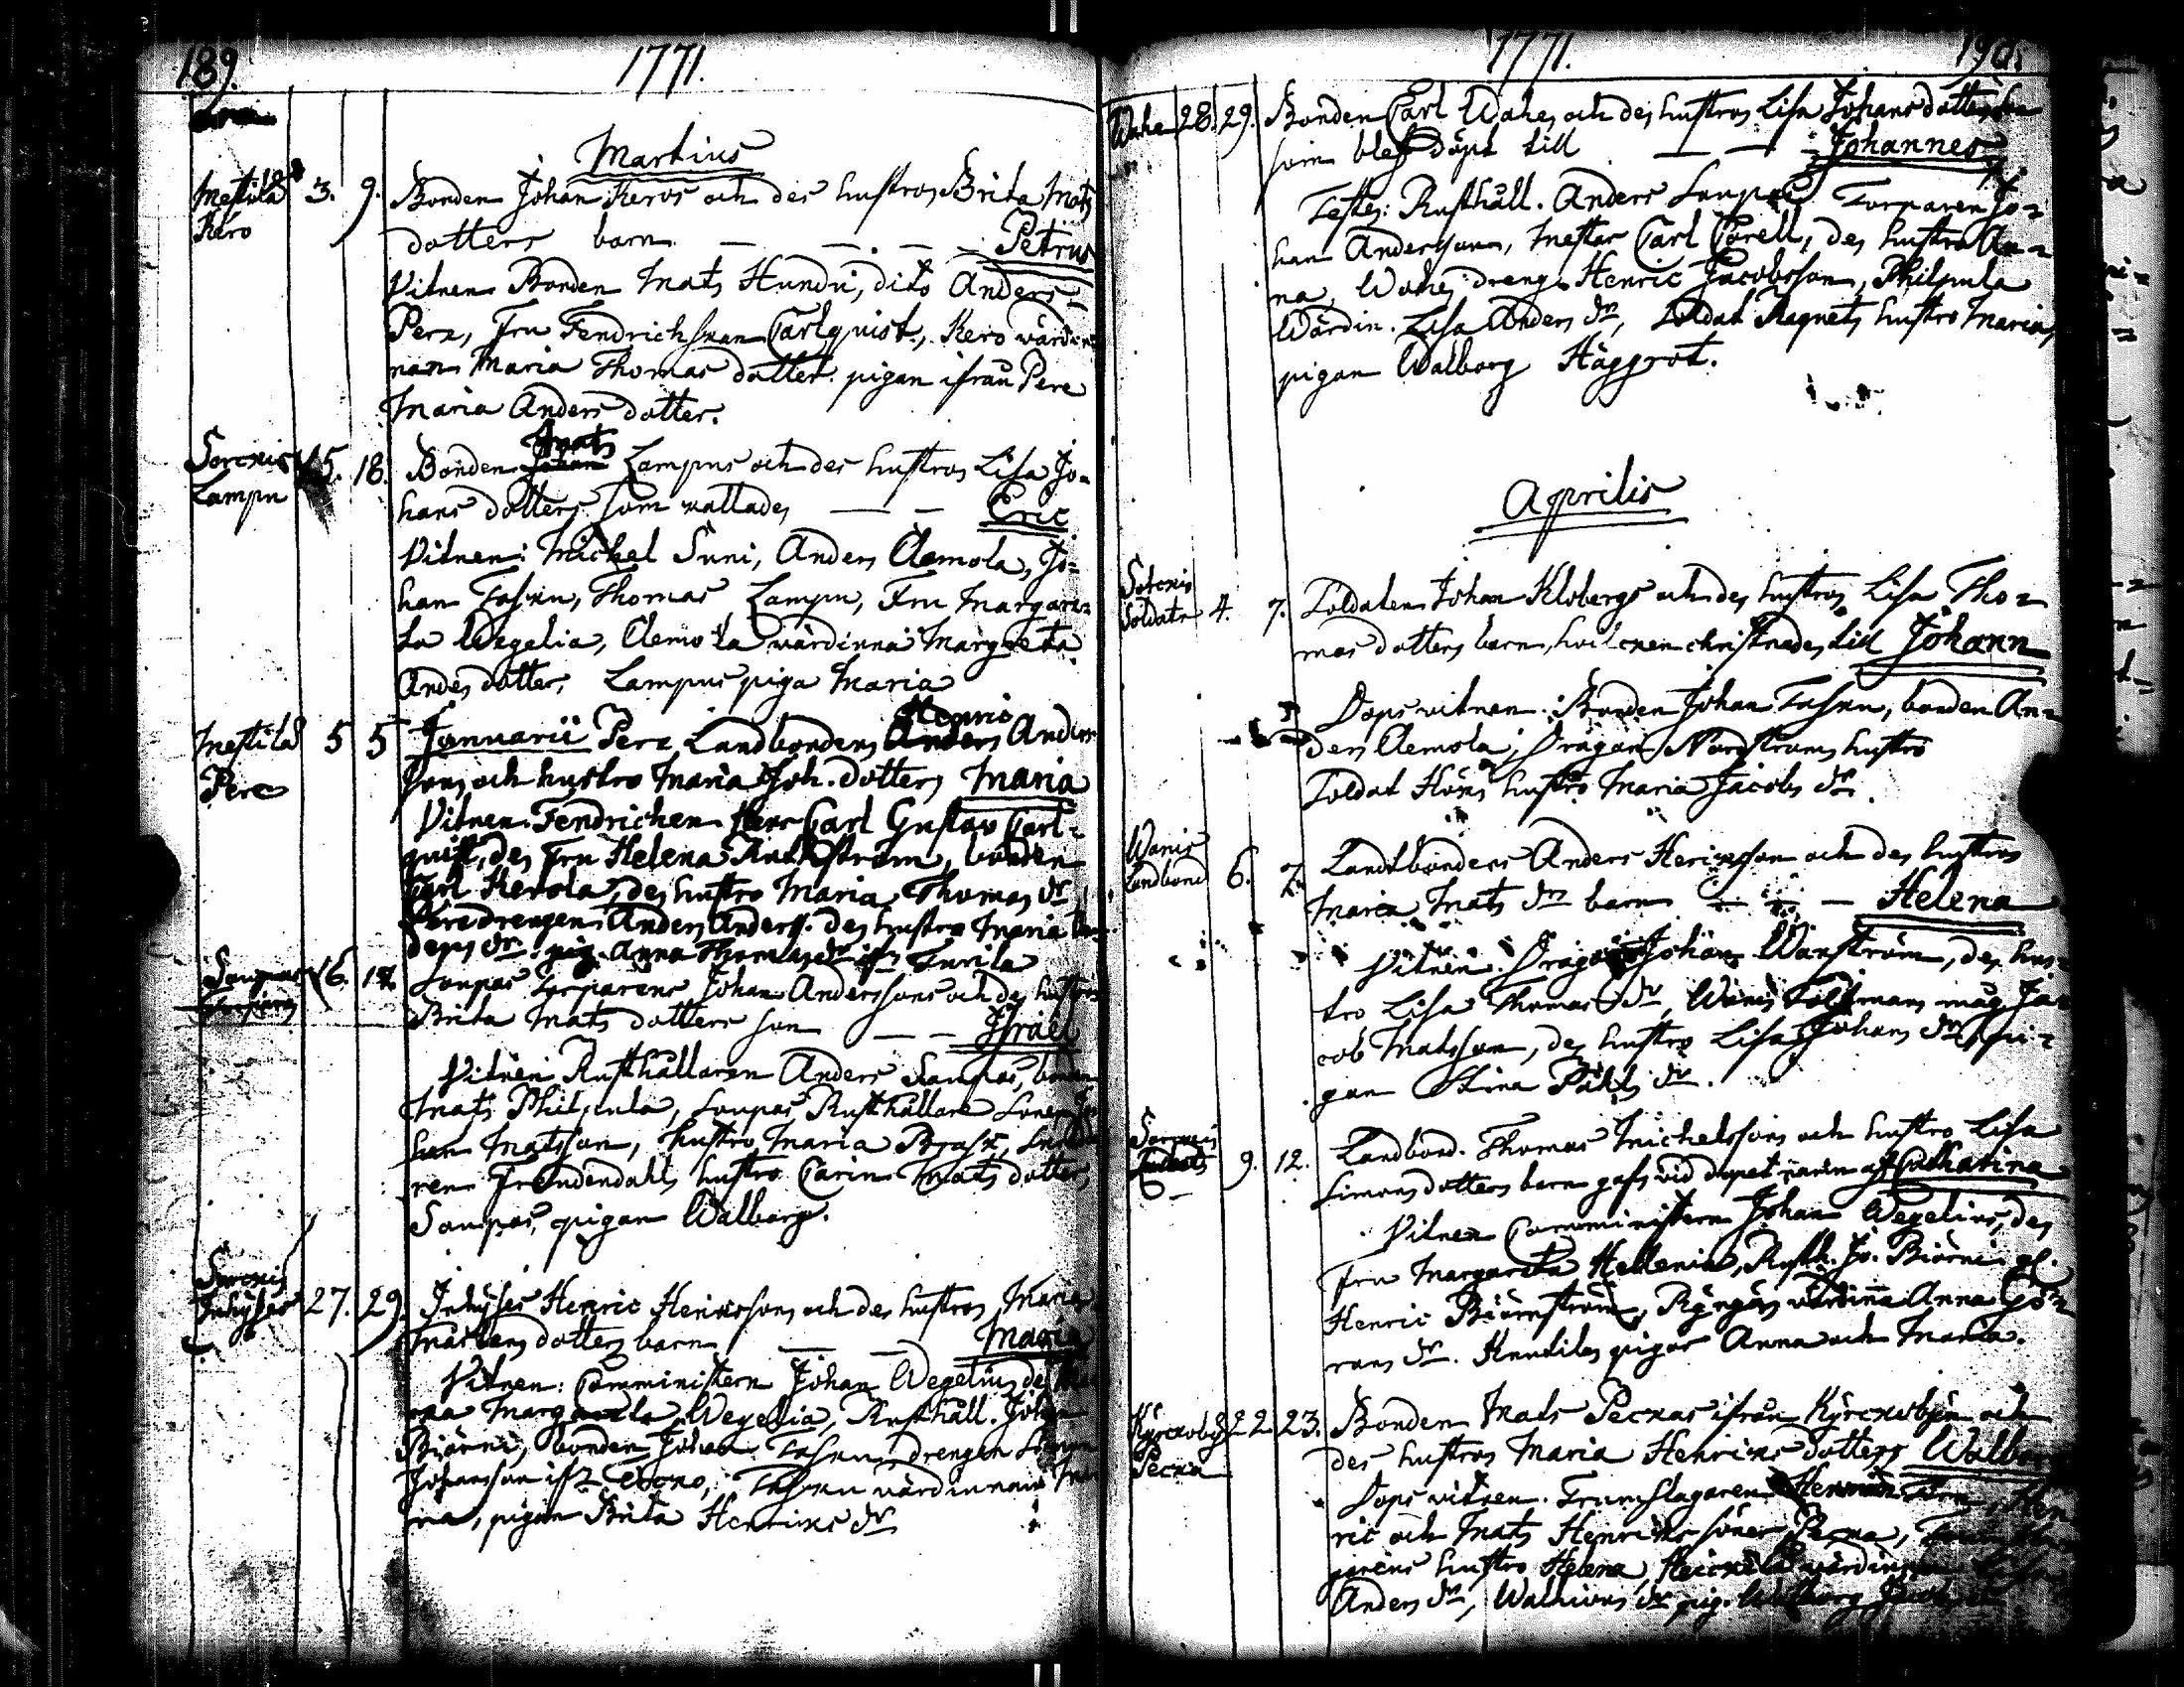 189.
1771.
Martius
Mestilä 3. 9. Bonden Johan Keros och des hustros Brita Mats
Kero
dotters barn — — — Petrus
Vitnen Bonden Mats Hundu, dito Anders
Pere, Fru Fendrichskan Carlquist, Kero värdin
nan Maria Thomas dotter. pigan ifrån Pere
Maria Anders dotter.
Sorckis 15. 18. Bonden Mats Lampus och des hustros Lisa Jo=
Lampu
hans dotters som kallades — — Eric
Vitnen: Michel Suni, Anders Clemola, Jo=
han Tasku, Thomas Lampu, Fru Margare=
ta Wegelia, Clemola värdinna Margreta
Anders dotter, Lampus piga Maria
Mestilä 5 5 Januarii Pere Landbondens Henric Anders
Pere
sons och hustro Maria Joh. dotters Maria
Vitnen. Fendrichen Herr Carl Gustav Carl=
quist, des Fru Helena bonden
Carl Kerola, des hustro Maria Thomas dr
Peredrengen Anders Anders. des hustro Maria
ders dr. pig. Anna Thomas dr ifr Turila
Saupas 16. 17. Saupas Torparens Johan Anderssons och des hustros
Brita Mats dotters son — — Israel
Vitnen Rusthållaren Anders Saupas, bonden
Mats Philpula, Saupas Rusthållare Sonen Jo
han Matsson, hustro Maria Brask,
ren Freudendahls hustro Carin Mats dotter
Saupas, pigan Walborg.
Sorckis
Inhyses 27. 29. Inhyses Henric Henricssons och des hustros Maria
Mårtens dotters barn — — Maria
Vitnen: Comministern Johan Wegelius des
Margareta Wegelia, Rusthåll. Johan
Biörni, bonden Johan Taskus drengen Simon
Johansson ifr Taskus värdinna Ma
ria, pigan Brita Henrics dr
1771.
190.
Wahe 28. 29. Bonden Carl Wahes och des hustros Lisa Johansdotters son
som blef döpt till — — Johannes
Testes: Rusthåll. Anders Saupas Torparen Jo=
han Andersson, Mestar Carl Carell, des hustro An=
na, Wahes dreng Henric Jacobsson, Philpula
Wärdin. Lisa Anders dr, Soldat Ragnets hustro Maria,
pigan Walborg Häggrot.
Aprilis
Sorckis
Soldatn 4. 7. Soldaten Johan Klobergs och des hustros Lisa Tho=
mas dotters barn, hvilcken christnades till Johann
Dopsvitnen: Bonden Johan Taskus, bonden An=
ders Clemola, Dragon Nordströms hustro
Soldat Höns hustro Maria Jacobs dr.
Wanis
Landbond 6. 7. Landtbondens Anders Hericsson och des hustros
Maria Mats dr barn — — — Helena
Vitnen. Dragon Johan Wanström, des hus=
tro Lisa Thomas dr, Wanis måg Ja=
cob Matsson, des hustro Lisa Johans dr, pi=
gan Stina Påhls dr.
9. 12. Landbond. Thomas Michelssons och hustro Lisa
Simonsdotters barn gafs vid dopet namn af Catharina
Vitnen Comministern Johan Wegelius, des
Fru Margareta Hellenia, Rusth. Jo. Biörni,
Henric Biörnström, värdinna Anna Gö=
rans dr. Knutilas pigor Anna och Maria.
Kyrckoby 22. 23. Bonden Mats Peckas ifrån Kyrckobyn och
Pecka
des hustros Maria Henrics dotters Walborg
Dopsvitnen. Trumslagaren Herman Hen
ric och Mats Henrics söner Pecka,
garens hustro Helena, Heickilä värdinna Lisa
Anders dr, pig. Walborg